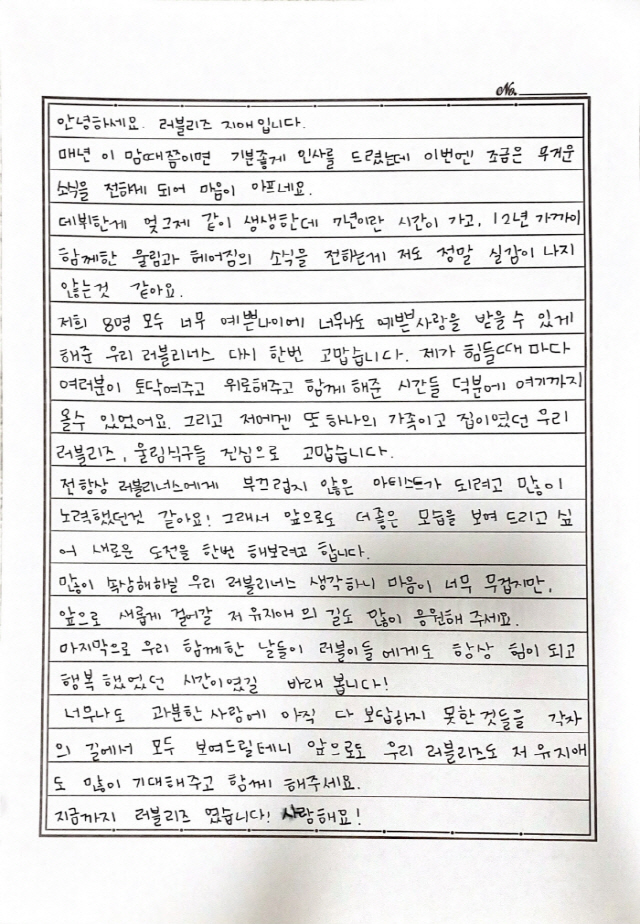 No.
안녕하세요. 러블리즈 지애입니다.
매년 이 맘때쯤이면 기분좋게 인사를 드렸는데 이번엔 조금은 무거운
소식을 전하게 되어 마음이 아프네요.
데뷔한게 엊그제 같이 생생한데 7년이란 시간이 가고, 12년 가까이
함께한 울림과 헤어짐의 소식을 전하는게 저도 정말 실감이 나지
않는것 같아요.
저희 8명 모두 너무 예쁜나이에 너무나도 예쁜사랑을 받을수 있게
해준 우리 러블리너스 다시 한번 고맙습니다. 제가 힘들때 마다
여러분이 토닥여주고 위로해주고 함께 해준 시간들 덕분에 여기까지
올수 있었어요. 그리고 저에겐 또 하나의 가족이고 집이였던 우리
러블리즈, 울림식구들 진심으로 고맙습니다.
전 항상 러블리너스에게 부끄럽지 않은 아티스트가 되려고 많이
노력했던것 같아요! 그래서 앞으로도 더좋은 모습을 보여 드리고 싶
어 새로운 도전을 한번 해보려고 합니다.
많이 속상해하실 우리 러블리너스 생각하니 마음이 너무 무겁지만,
앞으로 새롭게 걸어갈 저 유지애 의 길도 많이 응원해 주세요.
마지막으로 우리 함께한 날들이 러블이들 에게도 항상 힘이 되고
행복 했었던 시간이였길 바래 봅니다!
너무나도 과분한 사랑에 아직 다 보답하지 못한것들을 각자
의 길에서 모두 보여드릴테니 앞으로도 우리 러블리즈도 저 유지애
도 많이 기대해주고 함께 해주세요.
지금까지 러블리즈 였습니다! 사랑해요!